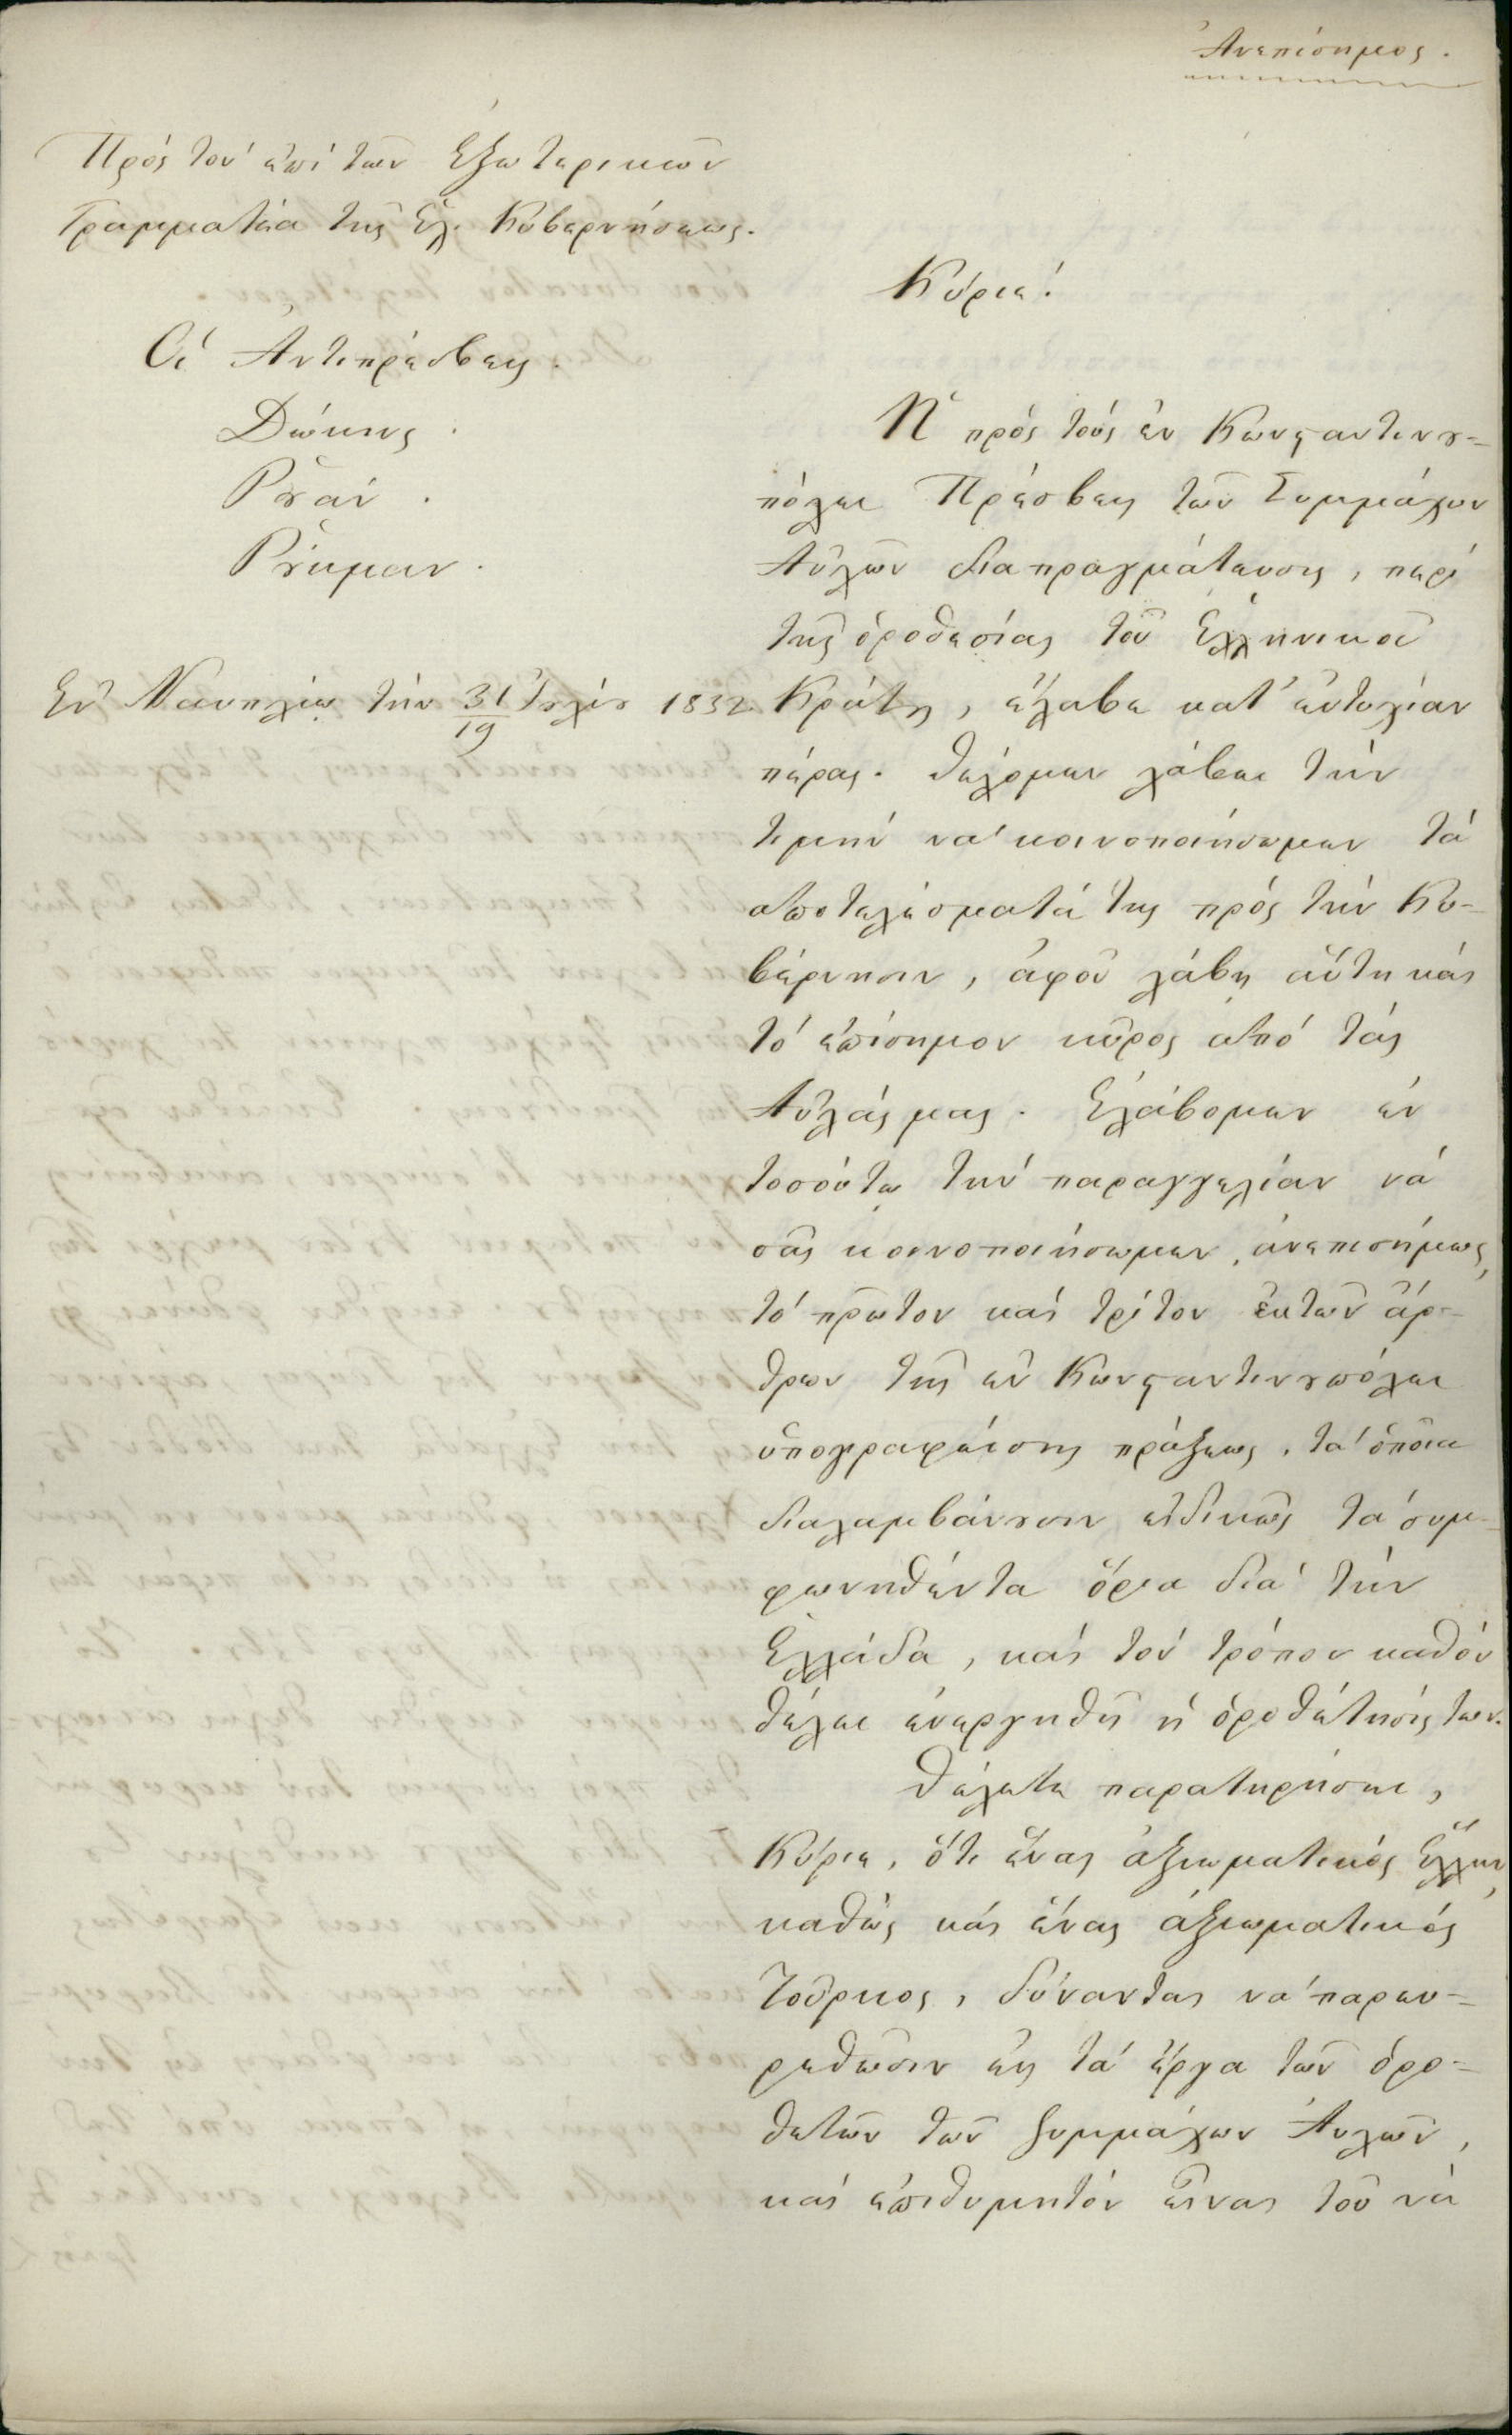 Ἀνεπίσημος.
Πρὸς τὸν ἐπὶ τῶν Ἐξωτερικῶν
Γραμματέα τῆς Ἑλ. Κυβερνήσεως.
Κύριε!
Οἱ Ἀντιπρέσβεις.
Δώκινς.
Ρουάν.
Ρύκμαν.
Ἐν Ναυπλίῳ τὴν 31/19 Ἰουλίου 1832.
Ἡ πρὸς τοὺς ἐν Κωνϛαντινου-
πόλει Πρέσβεις τῶν Συμμάχων
Αὐλῶν διαπραγμάτευσις, περὶ
τῆς ὁροθεσίας τοῦ Ἑλληνικοῦ
Κράτους, ἔλαβε κατ' εὐτυχίαν
πέρας. Θέλομεν λάβει τὴν
τιμὴν νὰ κοινοποιήσωμεν τὰ
ἀποτελέσματά της πρὸς τὴν Κυ-
βέρνησιν, ἀφοῦ λάβῃ αὕτη καὶ
τὸ ἐπίσημον κῦρος ἀπὸ τὰς
Αὐλάς μας. Ἐλάβομεν ἐν
τοσούτῳ τὴν παραγγελίαν νὰ
σᾶς κοινοποιήσωμεν, ἀνεπισήμως,
τὸ πρῶτον καὶ τρίτον ἐκ τῶν ἄρ-
θρων τῆς ἐν Κωνϛαντινουπόλει
ὑπογραφείσης πράξεως, τὰ ὁποῖα
διαλαμβάνουσιν εἰδικῶς τὰ συμ-
φωνηθέντα ὅρια διὰ τὴν
Ἑλλάδα, καὶ τὸν τρόπον καθ' ὃν
θέλει ἐνεργηθῆ ἡ ὁροθέτησίς των.
Θέλετε παρατηρήσει,
Κύριε, ὅτι ἕνας ἀξιωματικὸς Ἕλλην,
καθὼς καὶ ἕνας ἀξιωματικὸς
Τοῦρκος, δύνανται νὰ παρευ-
ρεθῶσιν εἰς τὰ ἔργα τῶν ὁρο-
θετῶν τῶν ξυμμάχων Αὐλῶν,
καὶ ἐπιθυμητὸν εἶναι τοῦ νὰ